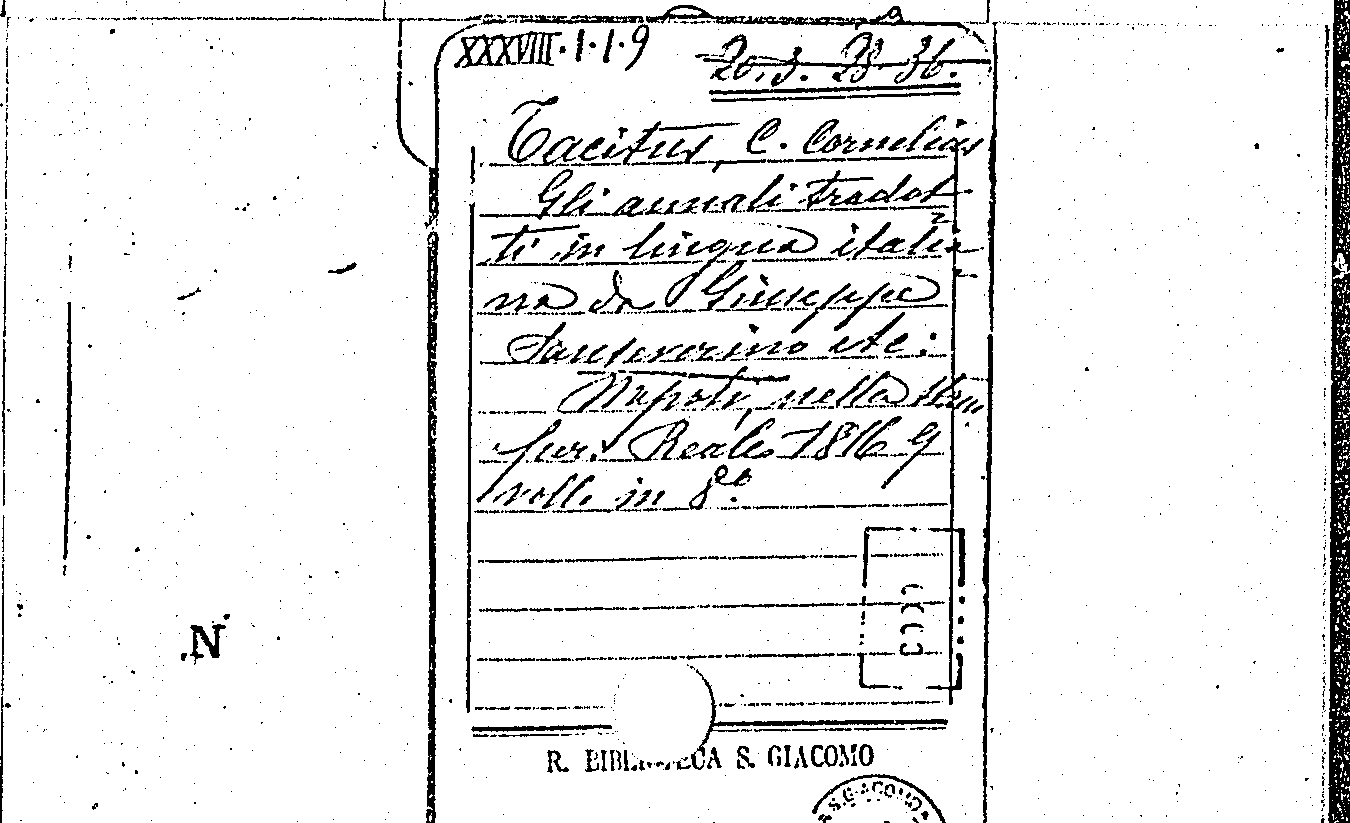 XXXVIII.1.1.9 20.3. 23. 36.
Tacitus, C. Cornelius
Gli annali tradot
ti in lingua italia
na da Giuseppe
Sanseverino etc:
Napoli, nella stam
per. Reale 1816 9
voll. in 8°.
N
R. BIBLIOTECA S. GIACOMO